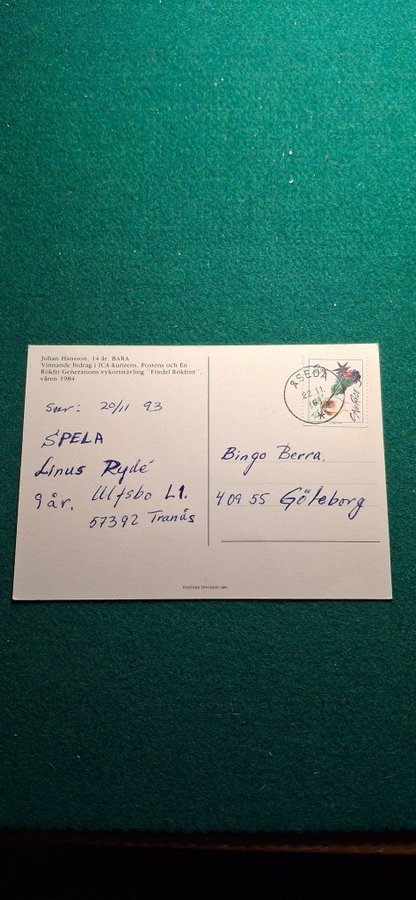 Johan Hansson, 14 år, BARA
Vinnande bidrag i ICA-kurirens, Postens och En
Rökfri Generations vykortstävling "Fördel Rökfritt",
våren 1984.
Svar: 20/11 93
SPELA
Linus Rydé
9 år. Ulfsbo L1.
57392 Tranås
ÅSEDA
22 11
Bingo Berra,
409 55 Göteborg
POSTENS TRYCKERI 1984